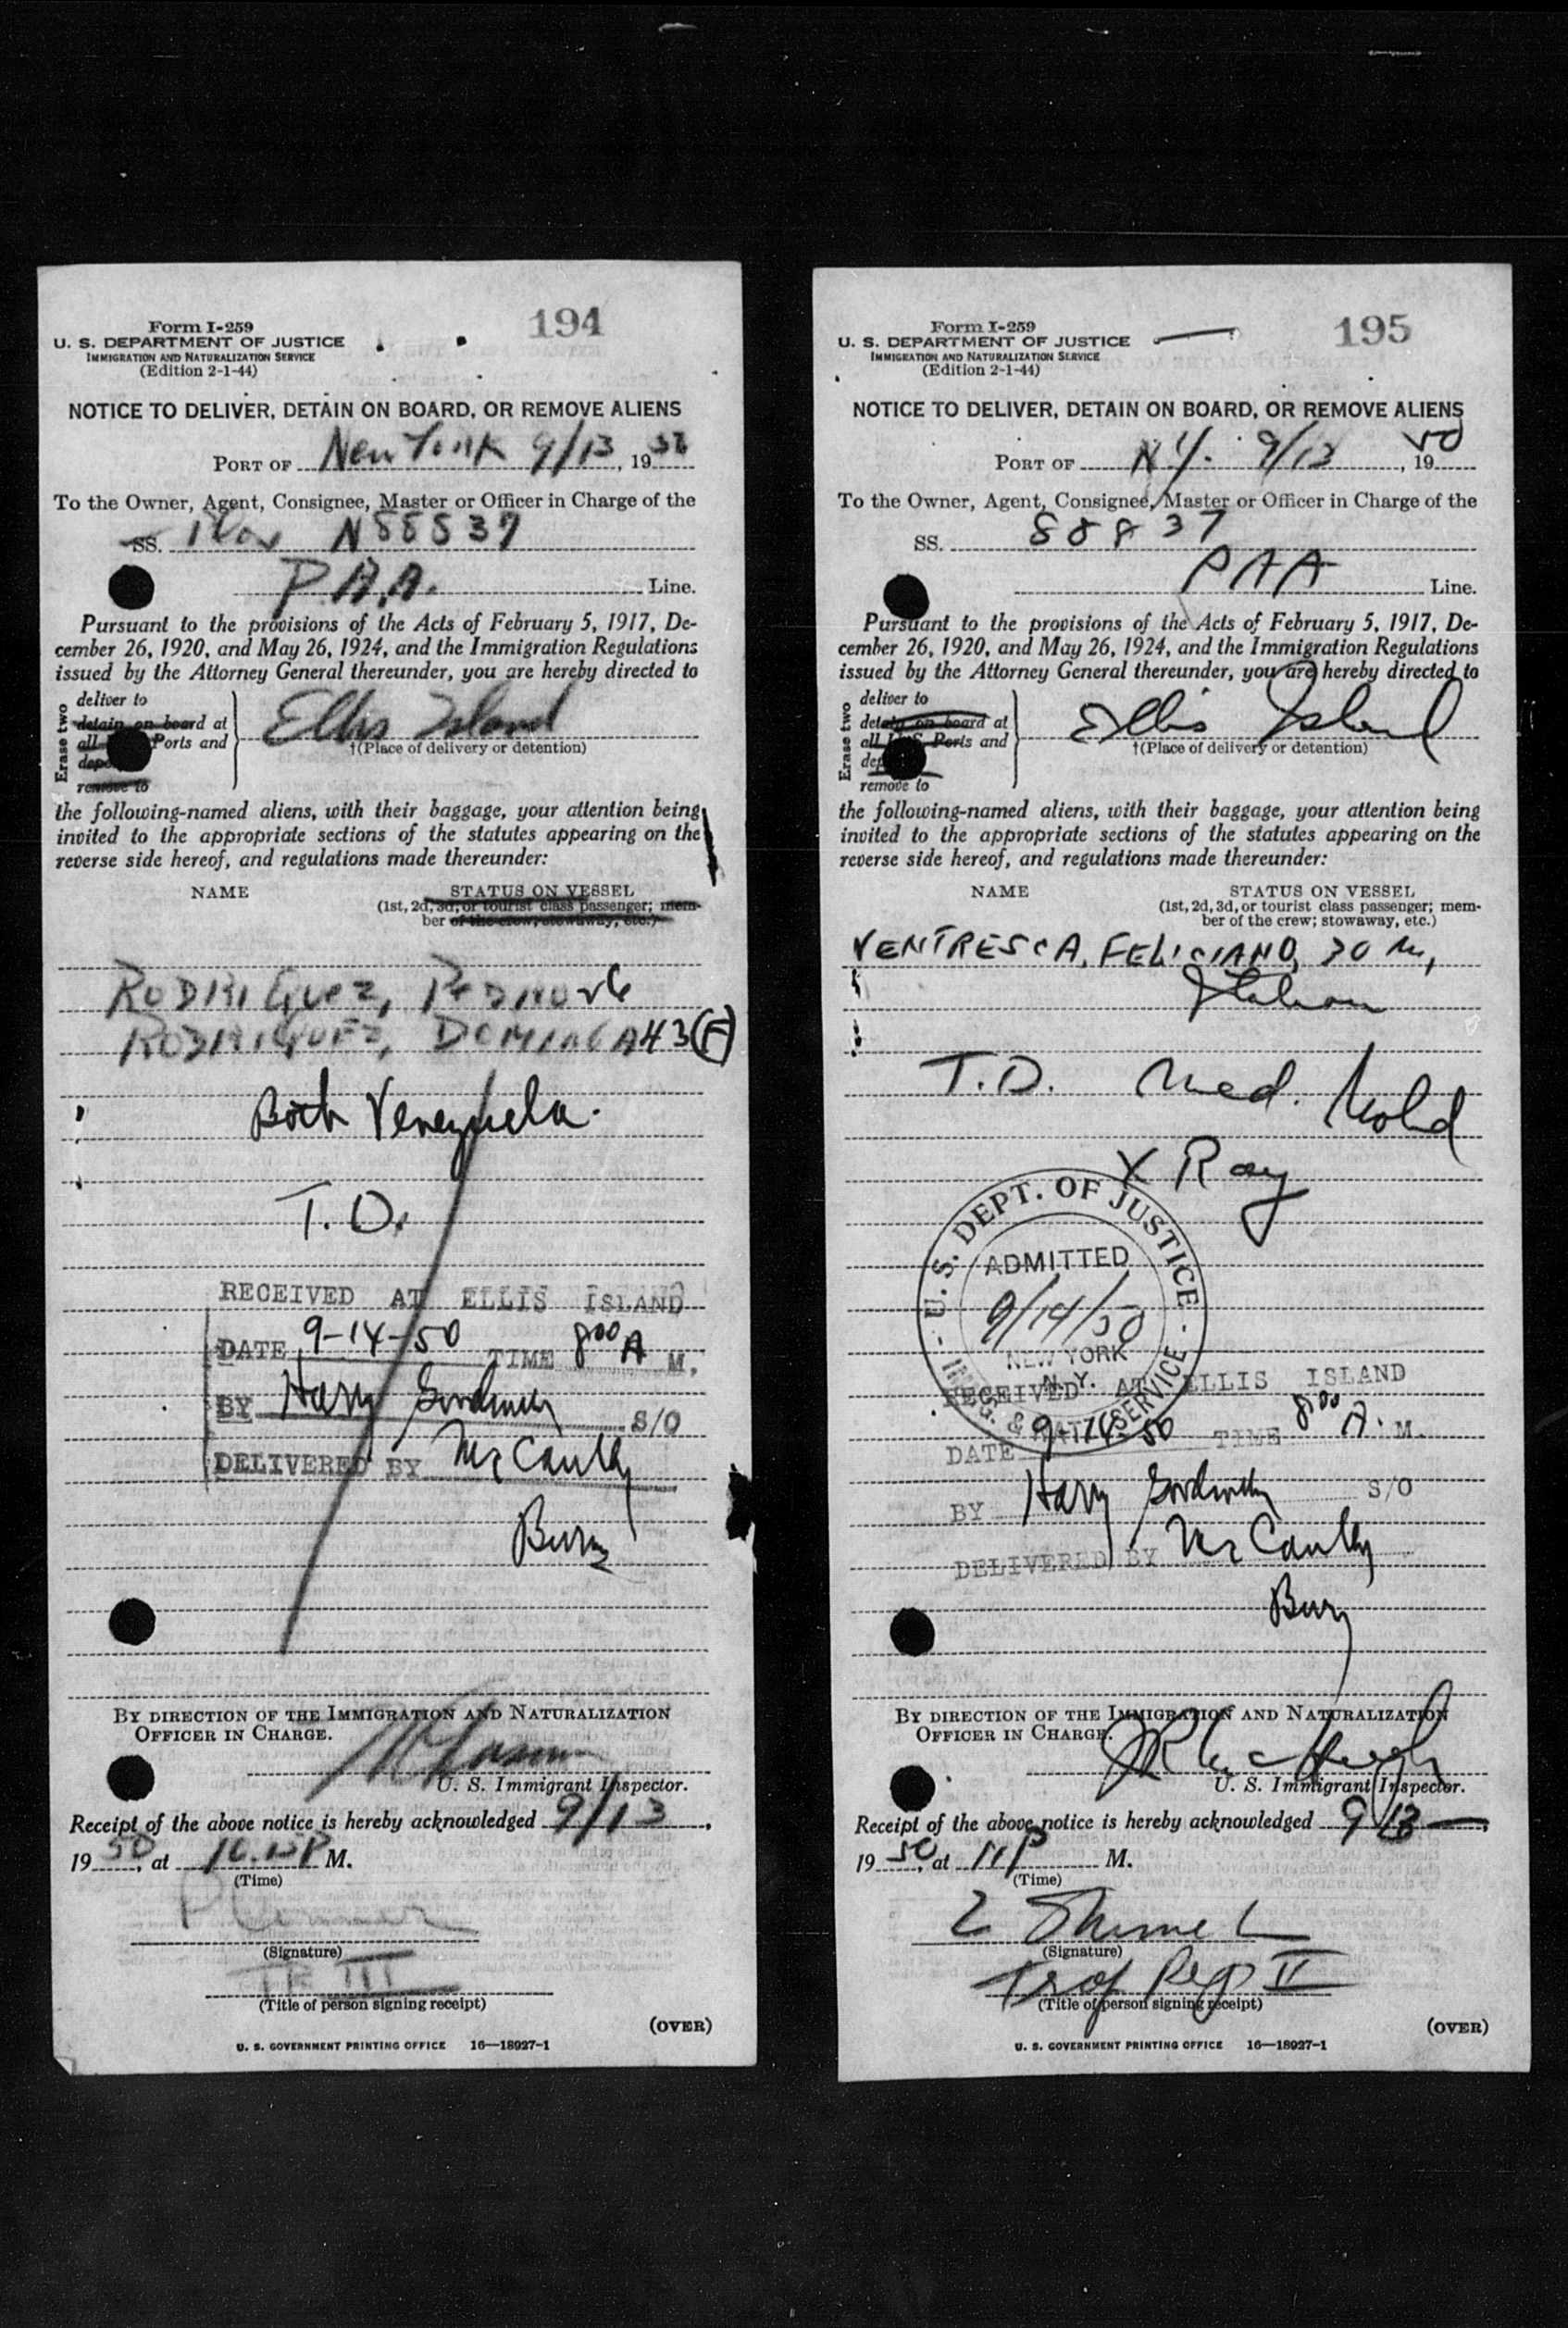 194
Form I-259
U. S. DEPARTMENT OF JUSTICE
IMMIGRATION AND NATURALIZATION SERVICE
(Edition 2-1-44)
NOTICE TO DELIVER, DETAIN ON BOARD, OR REMOVE ALIENS
PORT OF New York 9/13, 19
To the Owner, Agent, Consignee, Master or Officer in Charge of the
SS. N88837
P.A.A. Line.
Pursuant to the provisions of the Acts of February 5, 1917, De-
cember 26, 1920, and May 26, 1924, and the Immigration Regulations
issued by the Attorney General thereunder, you are hereby directed to
Erase two
deliver to
detain on board at
all Ports and
remove to
Ellis Island
†(Place of delivery or detention)
the following-named aliens, with their baggage, your attention being
invited to the appropriate sections of the statutes appearing on the
reverse side hereof, and regulations made thereunder:
NAME STATUS ON VESSEL
(1st, 2d, 3d, or tourist class passenger; mem-
ber of the crew; stowaway, etc.)
RODRIGUEZ, PEDRO
RODRIGUEZ, DOMINGA 43 (F)
Both Venezuela.
T.D.
RECEIVED AT ELLIS ISLAND
DATE 9-14-50 TIME 8:00 A M.
BY Harry S/O
DELIVERED BY McCaully
Burns
BY DIRECTION OF THE IMMIGRATION AND NATURALIZATION
OFFICER IN CHARGE.
U. S. Immigrant Inspector.
Receipt of the above notice is hereby acknowledged 9/13,
19 50, at P M.
(Time)
(Signature)
TR III
(Title of person signing receipt)
(OVER)
U. S. GOVERNMENT PRINTING OFFICE 16—18927-1
195
Form I-259
U. S. DEPARTMENT OF JUSTICE
IMMIGRATION AND NATURALIZATION SERVICE
(Edition 2-1-44)
NOTICE TO DELIVER, DETAIN ON BOARD, OR REMOVE ALIENS
PORT OF N.Y. 9/13, 19 50
To the Owner, Agent, Consignee, Master or Officer in Charge of the
SS. 88837
PAA Line.
Pursuant to the provisions of the Acts of February 5, 1917, De-
cember 26, 1920, and May 26, 1924, and the Immigration Regulations
issued by the Attorney General thereunder, you are hereby directed to
Erase two
deliver to
detain on board at
all U.S. Ports and
remove to
Ellis Island
†(Place of delivery or detention)
the following-named aliens, with their baggage, your attention being
invited to the appropriate sections of the statutes appearing on the
reverse side hereof, and regulations made thereunder:
NAME STATUS ON VESSEL
(1st, 2d, 3d, or tourist class passenger; mem-
ber of the crew; stowaway, etc.)
VENTRESCA, FELICIANO, 30 M,
Italian
T.D. Med. Hold
X Ray
U. S. DEPT. OF JUSTICE
ADMITTED
9/14/50
NEW YORK
N. Y.
IMMIG. & NAT. SERVICE
RECEIVED AT ELLIS ISLAND
DATE 9-14-50 TIME 8:00 A. M.
BY Harry S/O
DELIVERED BY McCaully
Burns
BY DIRECTION OF THE IMMIGRATION AND NATURALIZATION
OFFICER IN CHARGE.
U. S. Immigrant Inspector.
Receipt of the above notice is hereby acknowledged 9/13,
19 50, at 11 P M.
(Time)
(Signature)
Rep II
(Title of person signing receipt)
(OVER)
U. S. GOVERNMENT PRINTING OFFICE 16—18927-1